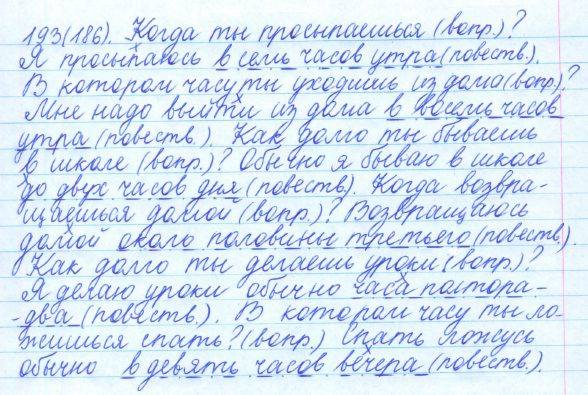 193(186). Когда ты просыпаешься (вопр.)?
Я просыпаюсь в семь часов утра (повеств.).
В котором часу ты уходишь из дома (вопр.)?
Мне надо выйти из дома в восемь часов
утра (повеств.). Как долго ты бываешь
в школе (вопр.)? Обычно я бываю в школе
до двух часов дня (повеств.). Когда возвра-
щаешься домой (вопр.)? Возвращаюсь
домой около половины третьего (повеств.)
Как долго ты делаешь уроки (вопр.)?
Я делаю уроки обычно часа полтора-
-два (повеств.). В котором часу ты ло-
жишься спать? (вопр.) Спать ложусь
обычно в девять часов вечера (повеств.).